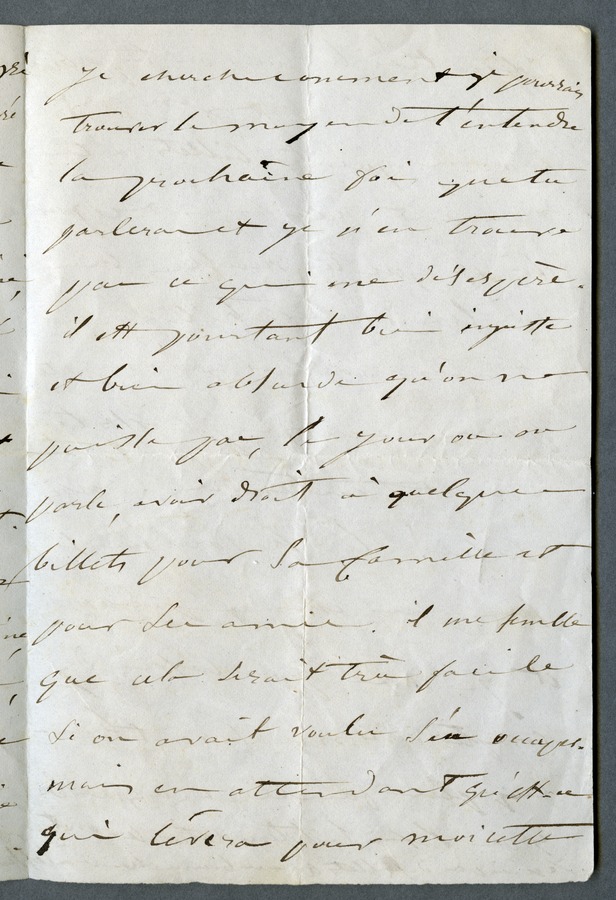 je cherche comment je pourrais
trouver le moyen de t'entendre
la prochaine fois que tu
parleras et je n'en trouve
pas ce qui me désespère.
il est pourtant bien injuste
et bien absurde qu'on ne
puisse pas, le jour où on
parle, avoir droit à quelques
billets pour sa famille et
pour ses amis. il me semble
que cela serait très facile
si on avait voulu s'en occuper.
mais en attendant qu'est-ce
qui lèvera pour moi cette